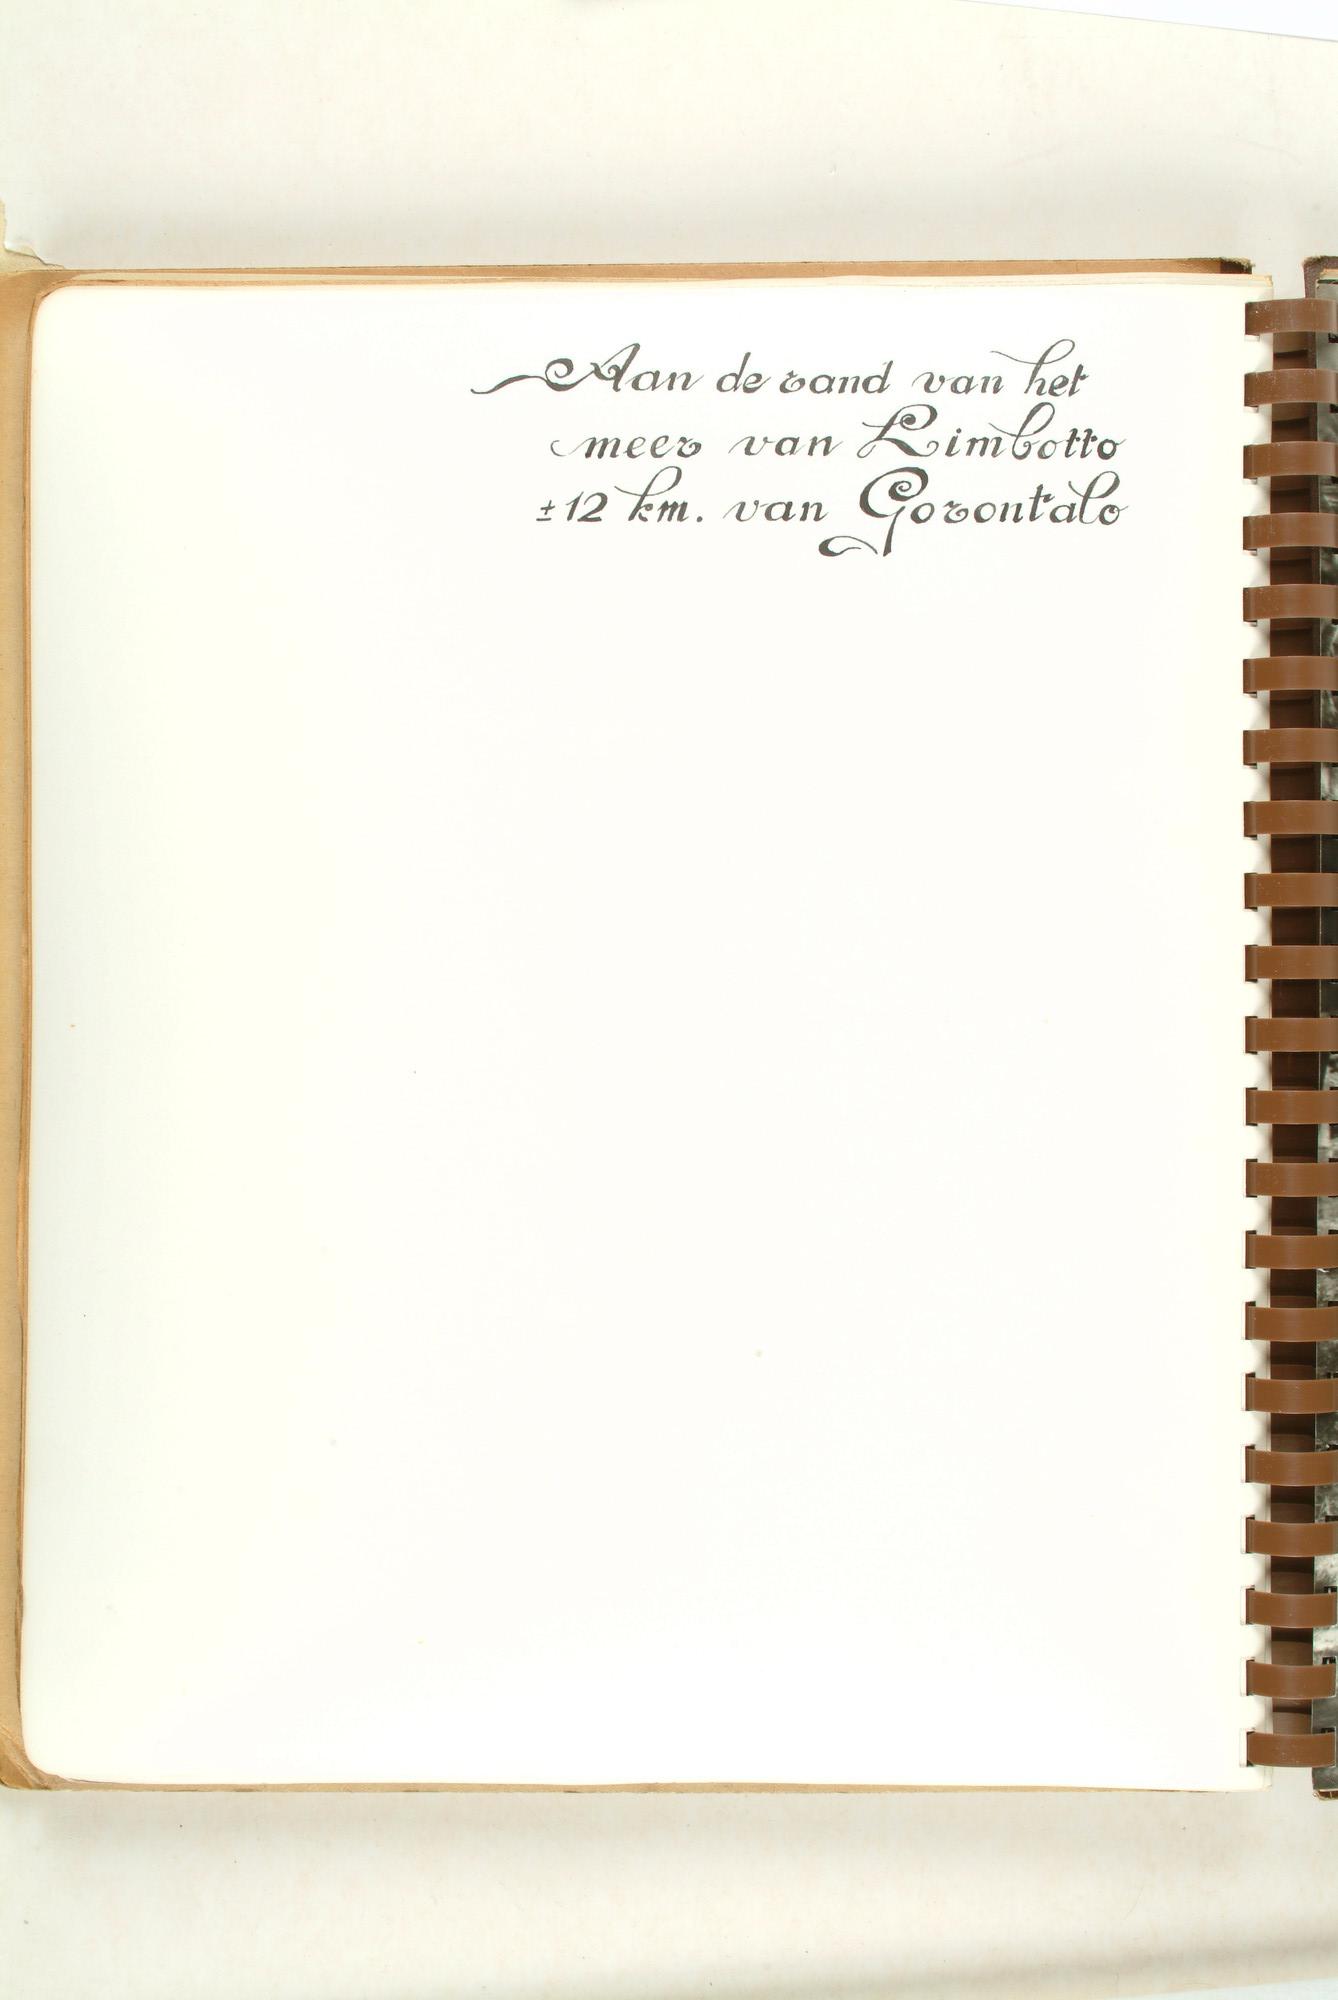 Aan de rand van het
meer van Limbotto
±12 km. van Gorontalo